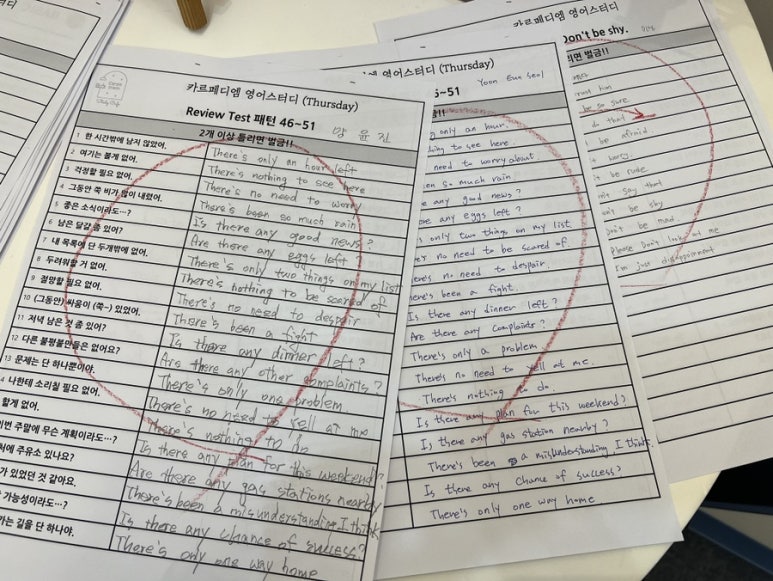 카르페디엠 영어스터디 (Thursday)
Review Test 패턴 46~51
양 윤 진
2개 이상 틀리면 벌금!!
1 한 시간밖에 남지 않았어. There's only an hour left
2 여기는 볼게 없어. There's nothing to see here
3 걱정할 필요 없어. There's no need to worry
4 그동안 쭉 비가 많이 내렸어. There's been so much rain
5 좋은 소식이라도...? Is there any good news?
6 남은 달걀 좀 있어? Are there any eggs left?
7 내 목록에 단 두개밖에 없어. There's only two things on my list
8 두려워할 거 없어. There's nothing to be scared of
9 절망할 필요 없어. There's no need to despair
10 (그동안) 싸움이 (쭉~) 있었어. There's been a fight
11 저녁 남은 것 좀 있어? Is there any dinner left?
12 다른 불평불만들은 없어요? Are there any other complaints?
13 문제는 단 하나뿐이야. There's only one problem
4 나한테 소리칠 필요 없어. There's no need to yell at me
할게 없어. There's nothing to do
이번 주말에 무슨 계획이라도...? Is there any plan for this weekend?
처에 주유소 있나요? Are there any gas stations nearby
가 있었던 것 같아요. There's been a misunderstanding I think
가능성이라도...? Is there any chance of success?
가는 길은 단 하나야. There's only one way home
영어스터디 (Thursday)
6~51
Yoon Eun Seol
벌금!!
only an hour.
thing to see here.
need to worry about.
een so much rain
e any good news?
ere any eggs left?
s only two things on my list
no need to be scared of.
ere's no need to despair.
here's been a fight.
Is there any dinner left?
Are there any complaints?
There's only a problem
There's no need to yell at me.
There's nothing to do.
Is there any plan for this weekend?
Is there any gas station nearby?
There's been a misunderstanding I think.
Is there any chance of success?
There's only one way home
카르페디엠 영어스터디
Don't be shy.
리면 벌금!!
trust him
be so sure.
do that
be afraid
worry.
be rude
say that
be shy
Don't be mad.
Please Don't look at me
I'm just disappointment